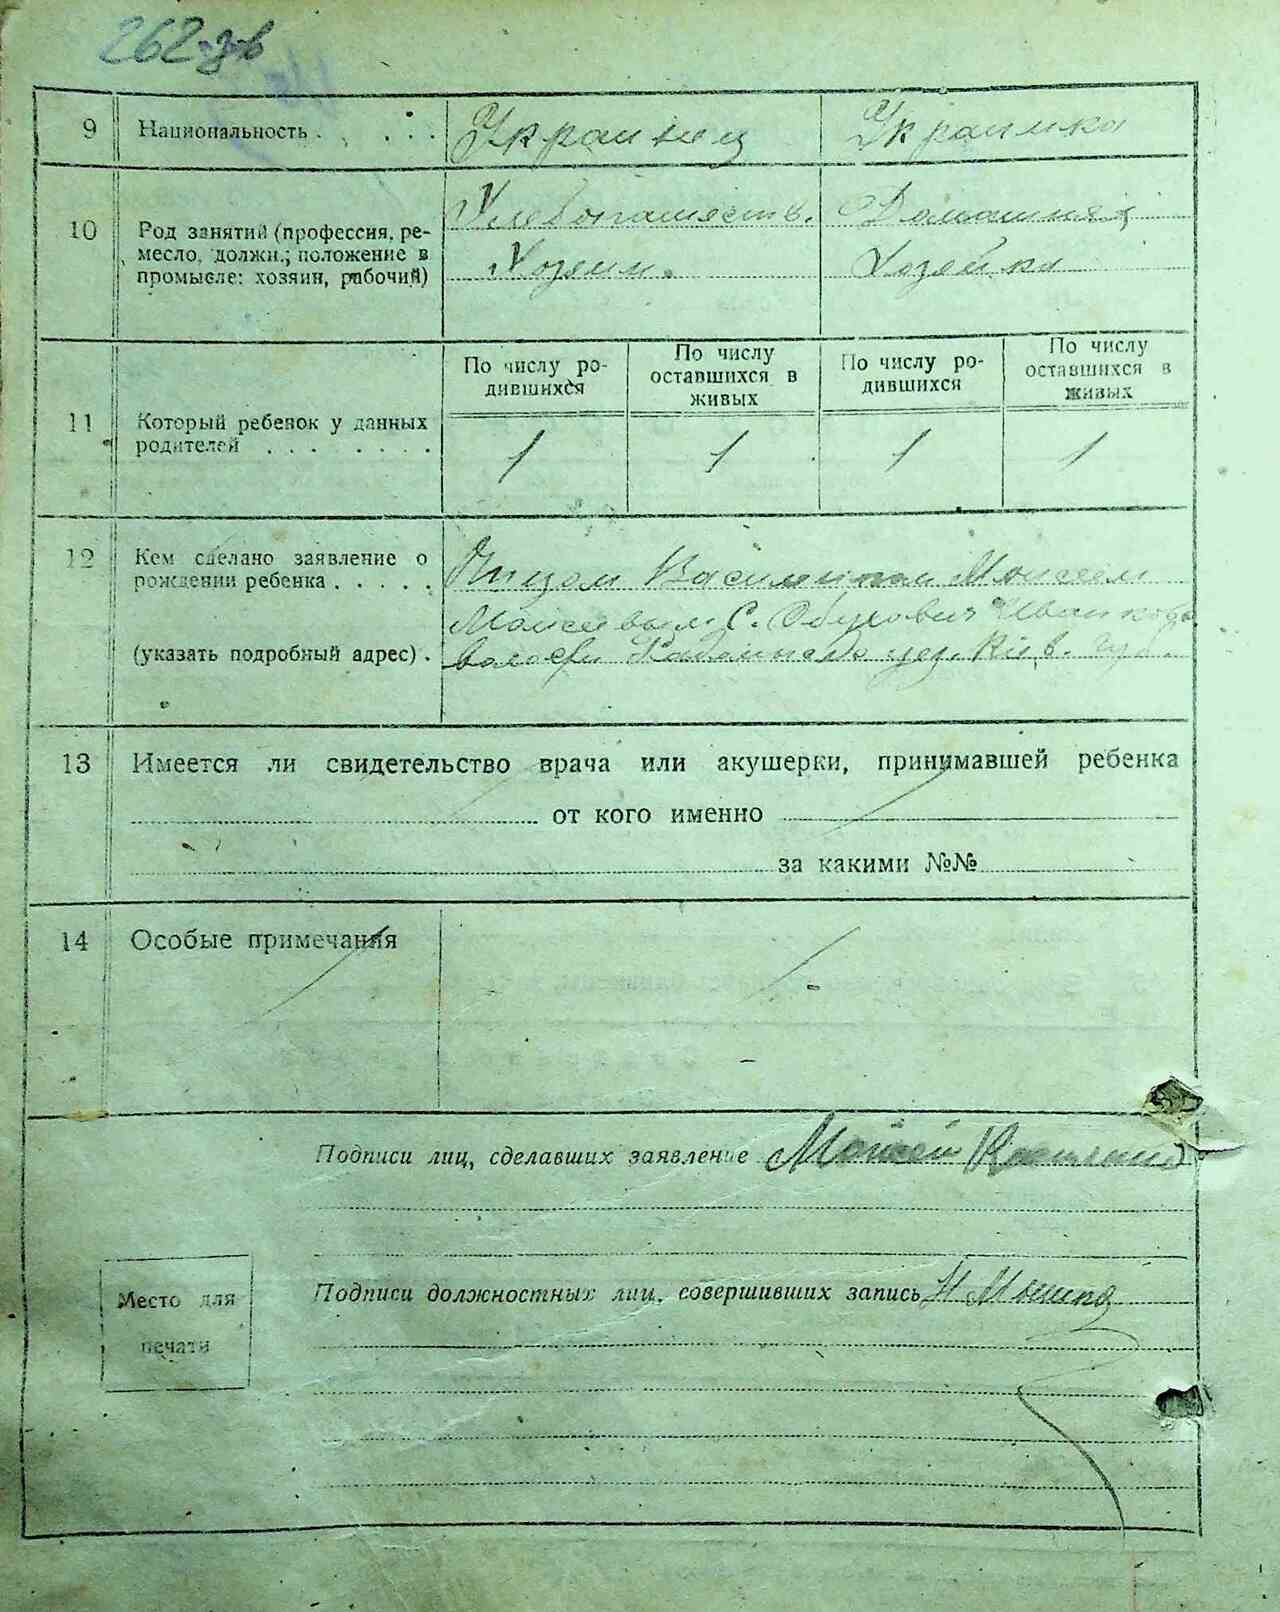 262 зв
9 Национальность . . . . Украинец Украинка
10 Род занятий (профессия, ре-
месло, должн.; положение в
промысле: хозяин, рабочий)
Хлебопашеств. Домашняя
Хозяин. Хозяйка
11 Который ребенок у данных
родителей . . . . . . .
По числу ро-
дившихся
По числу
оставшихся в
живых
По числу ро-
дившихся
По числу
оставшихся в
живых
1 1 1 1
12 Кем сделано заявление о
рождении ребенка . . . . .
(указать подробный адрес) .
Отцом Моисеем
С.
волости уез. Киев. губ.
13 Имеется ли свидетельство врача или акушерки, принимавшей ребенка
от кого именно
за какими №№
14 Особые примечания
Подписи лиц, сделавших заявление Мойсей
Подписи должностных лиц, совершивших запись
Место для
печати